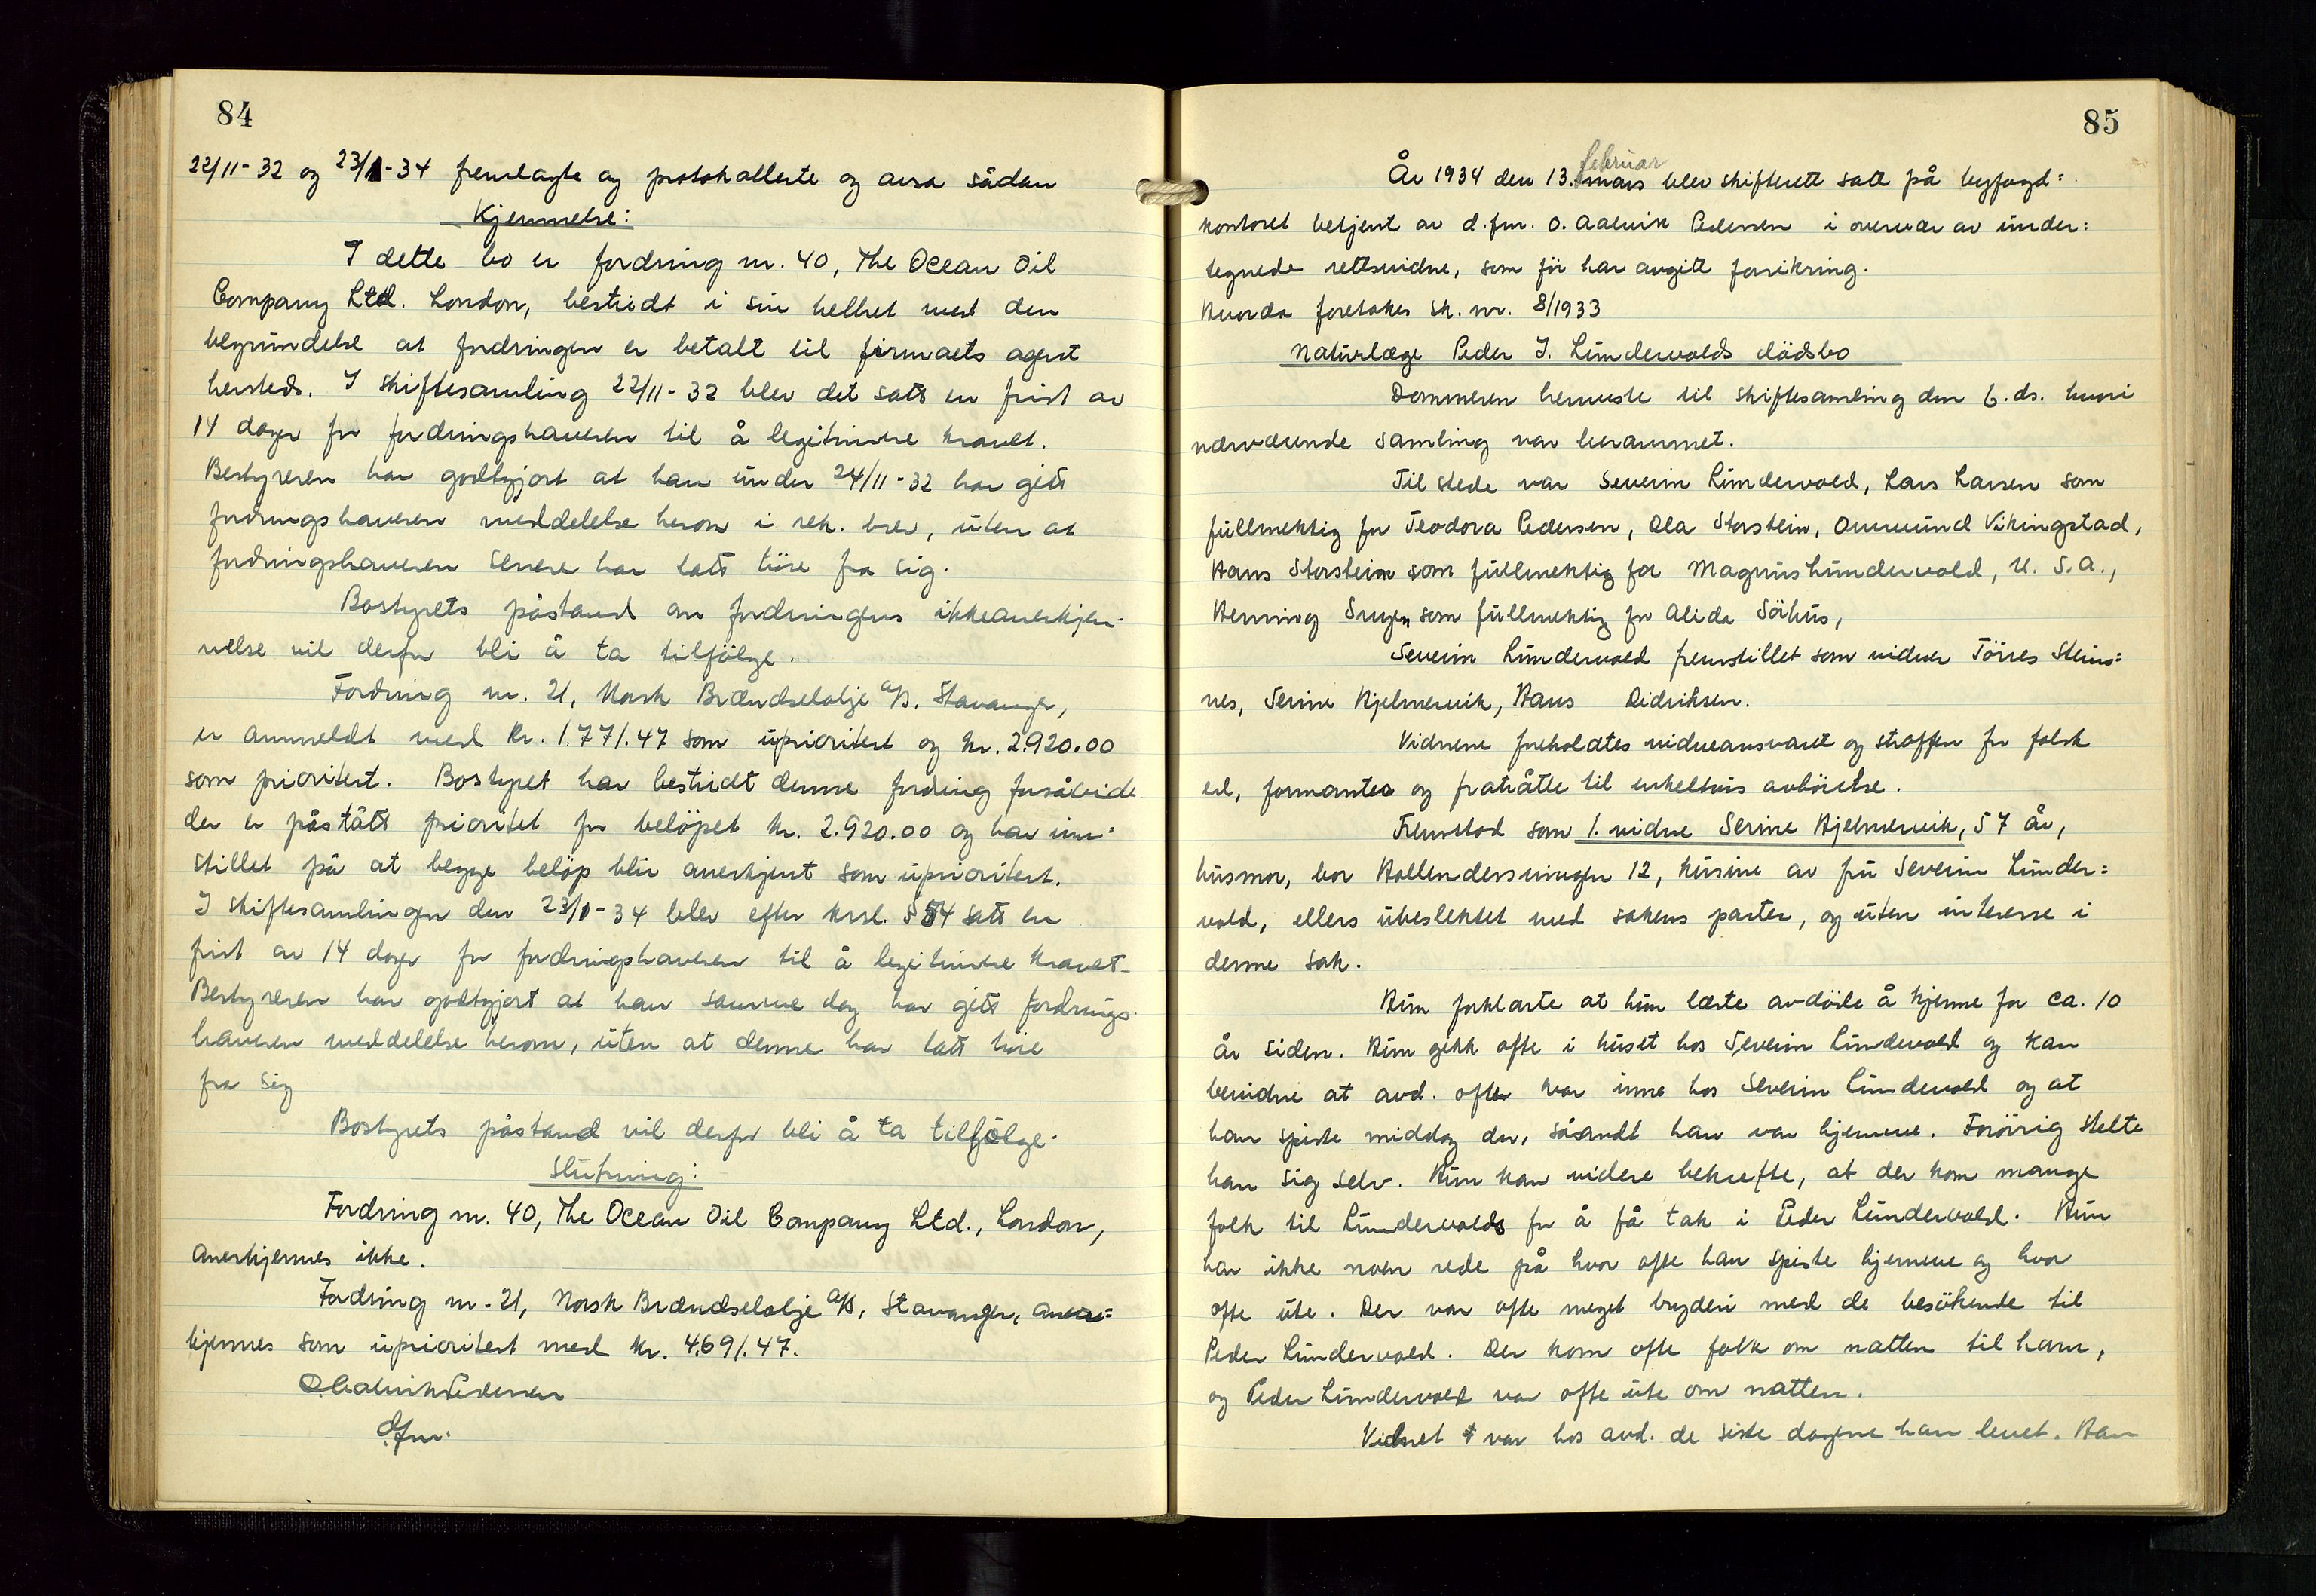 84
22/11-32 og 23/1-34 fremlagte og protokollerte og avsa sådan
Kjennelse:
I dette bo er fordring nr. 40, The Ocean Oil
Company Ltd. London, bestridt i sin helhet med den
begrundelse at fordringen er betalt til firmaets agent
hersteds. I skiftesamling 22/11-32 blev det satt en frist av
14 dager for fordringshaveren til å legitimere kravet.
Bestyreren har godtgjort at han under 24/11-32 har gitt
fordringshaveren meddelelse herom i rek. brev, uten at
fordringshaveren senere har latt höre fra sig.
Bostyrets påstand om fordringens ikkeanerkjen-
nelse vil derfor bli å ta tilfölge.
Fordring nr. 21, Norsk Brændselolje A/S. Stavanger,
er anmeldt med Kr. 1.771.47 som uprioritert og kr. 2.920.00
som prioritert. Bostyret har bestridt denne fordring forsåvidt
der er påstått prioritet for belöpet kr. 2.920.00 og har inn-
stillet på at begge belöp blir anerkjent som uprioritert.
I skiftesamlingen den 23/1-34 blev efter kksl. § 54 satt en
frist av 14 dager for fordringshaveren til å legitimere kravet.
Bestyreren har godtgjort at han samme dag har gitt fordrings-
haveren meddelelse herom, uten at denne har latt höre
fra sig
Bostyrets påstand vil derfor bli å ta tilfölge.
Slutning:
Fordring nr. 40, The Ocean Oil Company Ltd., London,
anerkjennes ikke.
Fordring nr. 21, Norsk Brændselolje A/S, Stavanger, aner=
kjennes som uprioritert med kr. 4.691.47.
O. Aalvik Pedersen
d.fm.
85
februar
År 1934 den 13. mars blev skifterett satt på byfogd=
kontoret betjent av d.fm. O. Aalvik Pedersen i overvær av under=
tegnede rettsvidne, som för har avgitt forsikring.
Hvorda foretokes sk. nr. 8/1933
Naturlæge Peder J. Lundervolds dödsbo
Dommeren henviste til skiftesamling den 6. ds. hvori
nærværende samling var berammet.
Til stede var Severin Lundervold, Lars Larsen som
fullmektig for Teodora Pedersen, Ola Storstein, Ommund Vikingstad,
Hans Storstein som fullmektig for Magnus Lundervold, U. S. A.,
Henning som fullmektig for Alida Söhus,
Severin Lundervold fremstillet som vidner Törres Steins=
nes, Serine Hjelmervik, Hans Didriksen.
Vidnene foreholdtes vidneansvaret og straffen for falsk
ed, formantes og fratrådte til enkeltvis avhörelse.
Fremstod som 1. vidne Serine Hjelmervik, 57 år,
husmor, bor Hollendersmuget 12, kusine av fru Severin Lunder=
vold, ellers ubeslektet med sakens parter, og uten interesse i
denne sak.
Hun forklarte at hun lærte avdöde å kjenne for ca. 10
år siden. Hun gikk ofte i huset hos Severin Lundervold og kan
bevidne at avd. ofte var inne hos Severin Lundervold og at
han spiste middag der, såsandt han var hjemme. Forövrig stelte
han sig selv. Hun kan videre bekrefte, at der kom mange
folk til Lundervolds for å få tak i Peder Lundervold. Hun
har ikke noen rede på hvor ofte han spiste hjemme og hvor
ofte ute. Der var ofte meget bryderi med de besökende til
Peder Lundervold. Der kom ofte folk om natten til ham,
og Peder Lundervold var ofte ute om natten.
Vidnet var hos avd. de siste dagene han levet. Han